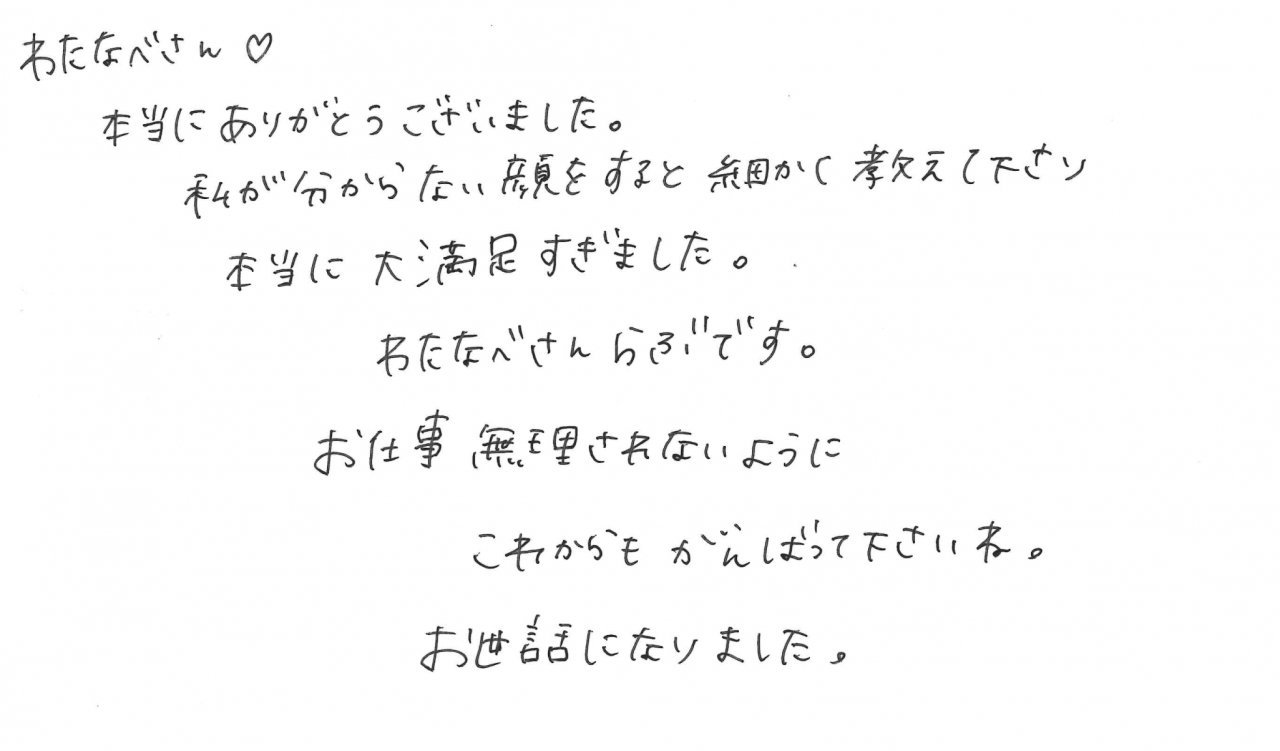 わたなべさん♡
本当にありがとうございました。
私が分からない顔をすると細かく教えて下さり
本当に大満足すぎました。
わたなべさんらぶです。
お仕事無理されないように
これからもがんばって下さいね。
お世話になりました。